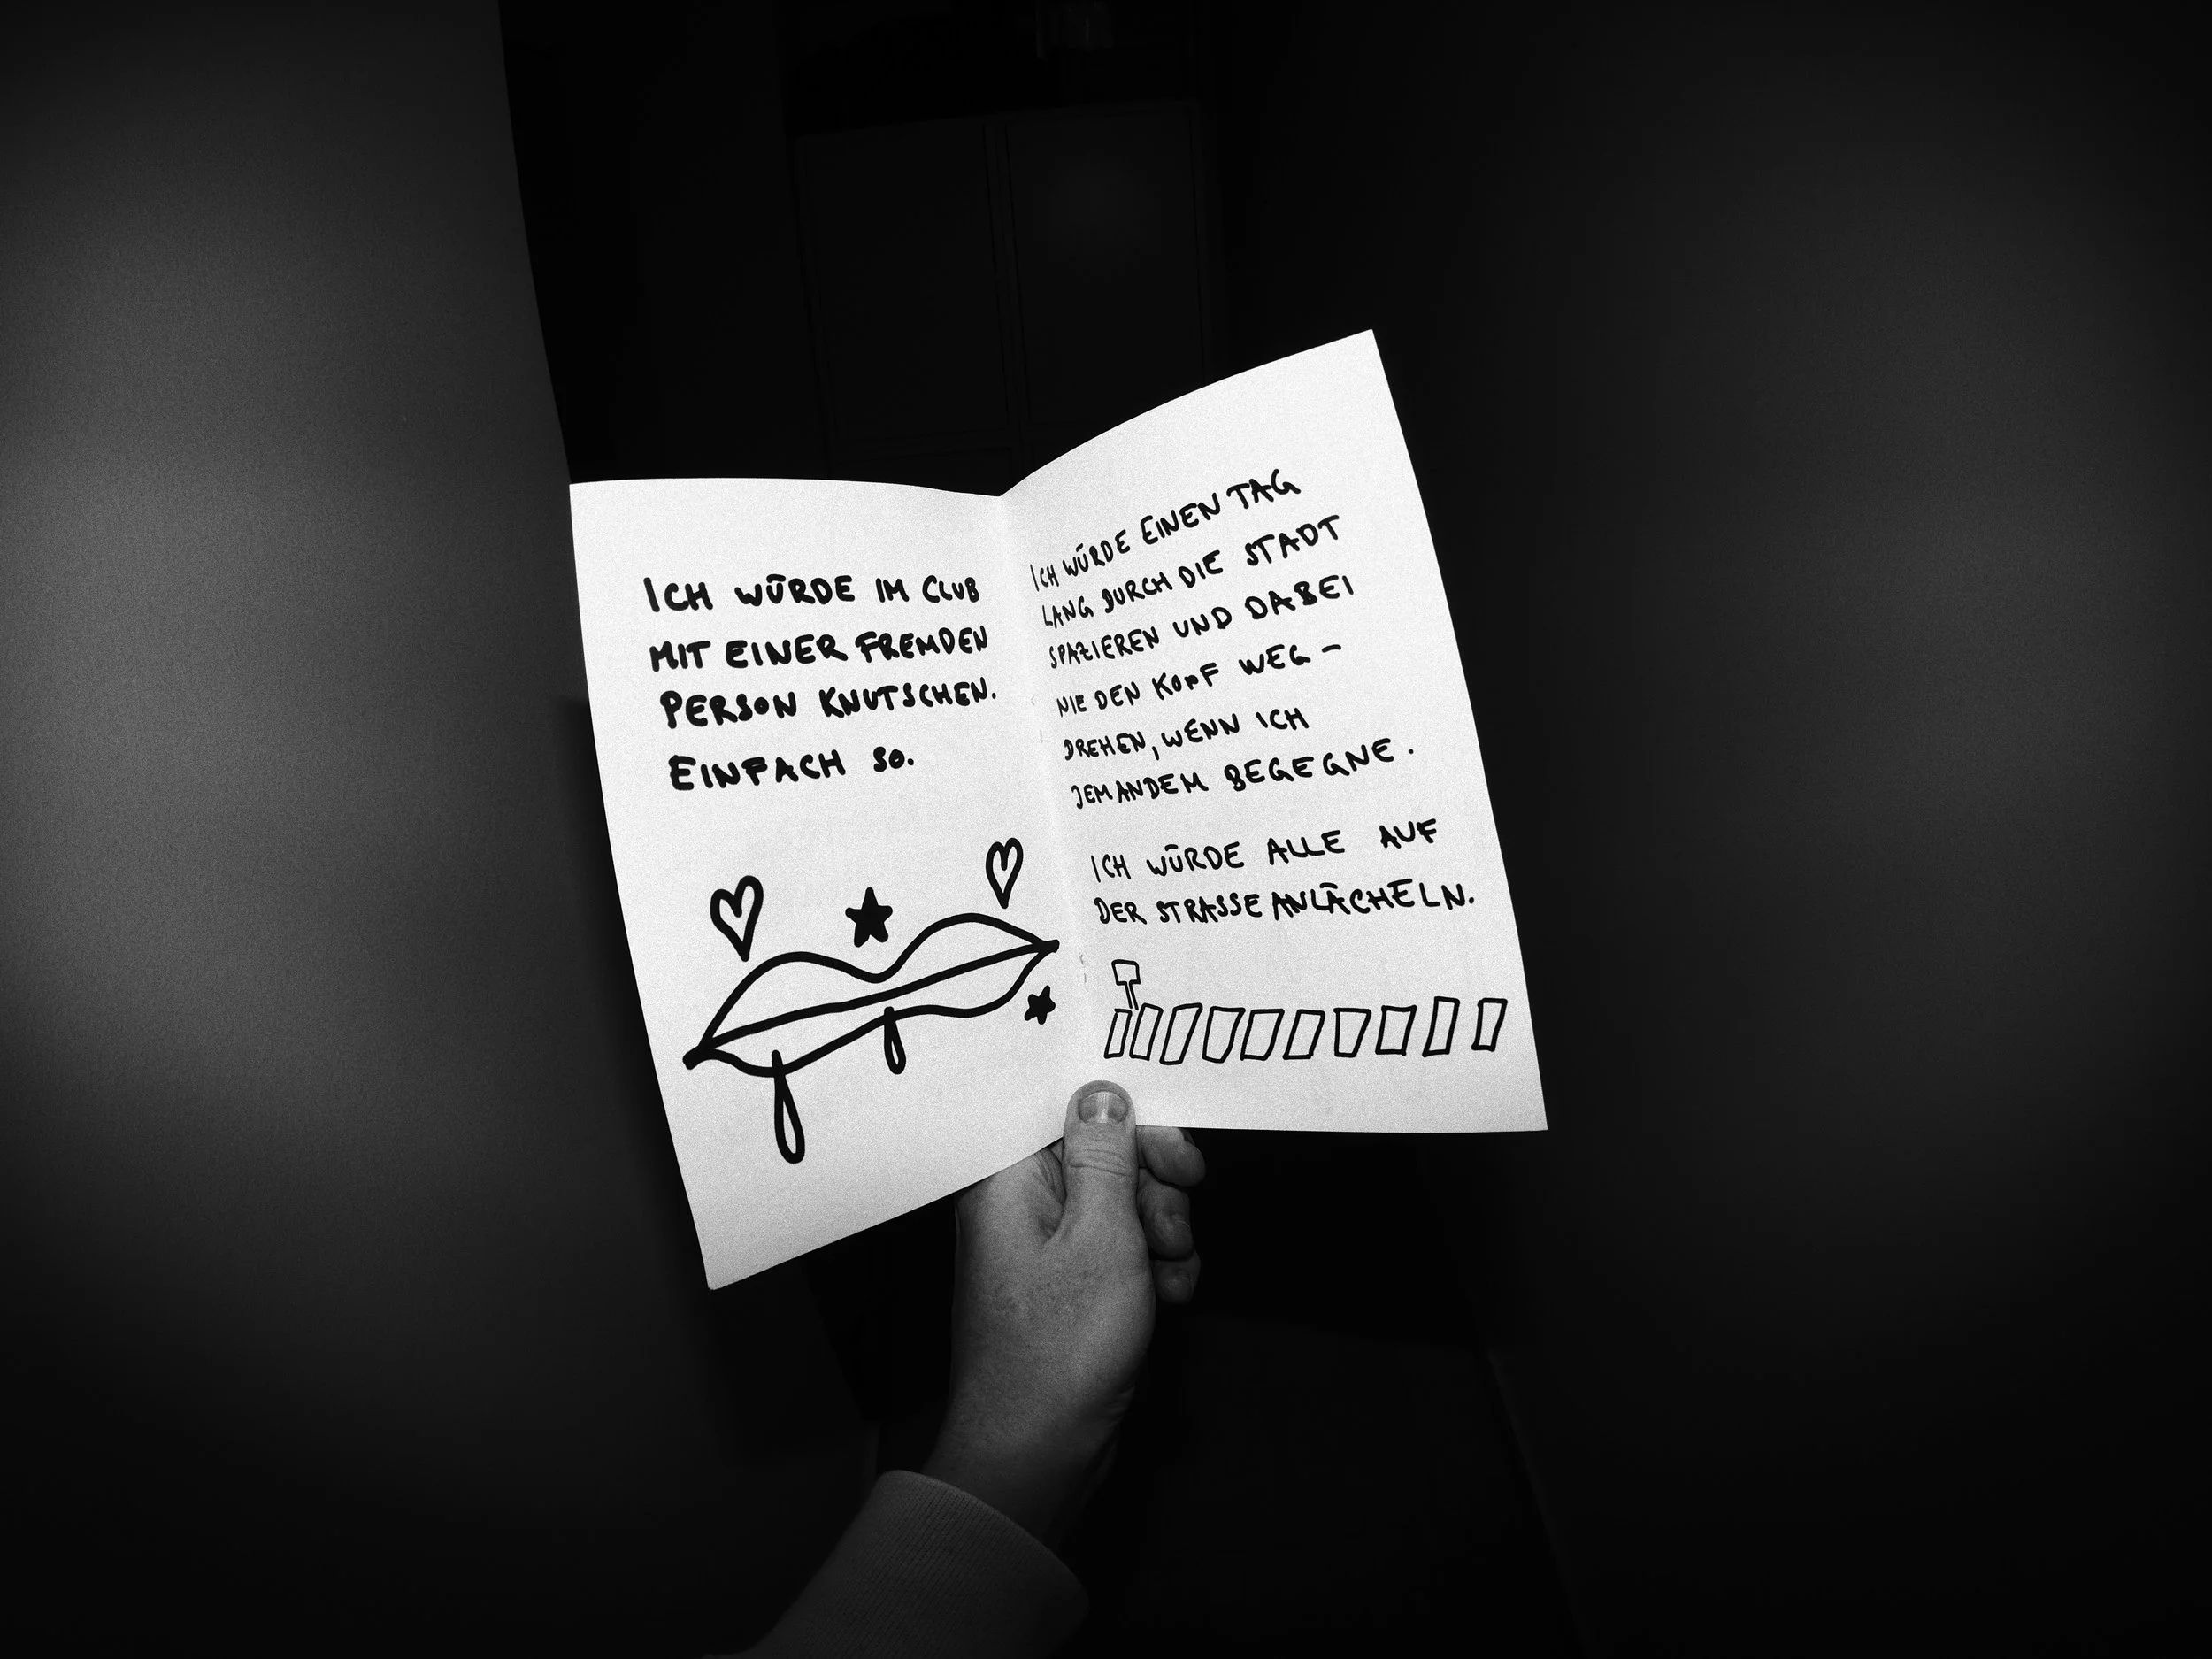 ICH WÜRDE IM CLUB
MIT EINER FREMDEN
PERSON KNUTSCHEN.
EINFACH SO.
ICH WÜRDE EINEN TAG
LANG DURCH DIE STADT
SPAZIEREN UND DABEI
NIE DEN KOPF WEG-
DREHEN, WENN ICH
JEMANDEM BEGEGNE.
ICH WÜRDE ALLE AUF
DER STRASSE ANLÄCHELN.